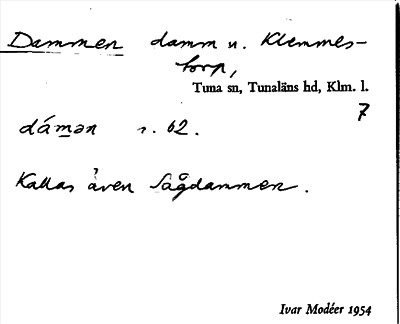 Dammen damm u. Klemmes-
torp,
Tuna sn, Tunaläns hd, Klm. l.
7
dámən s. 62.
Kallas även Sågdammen.
Ivar Modéer 1954